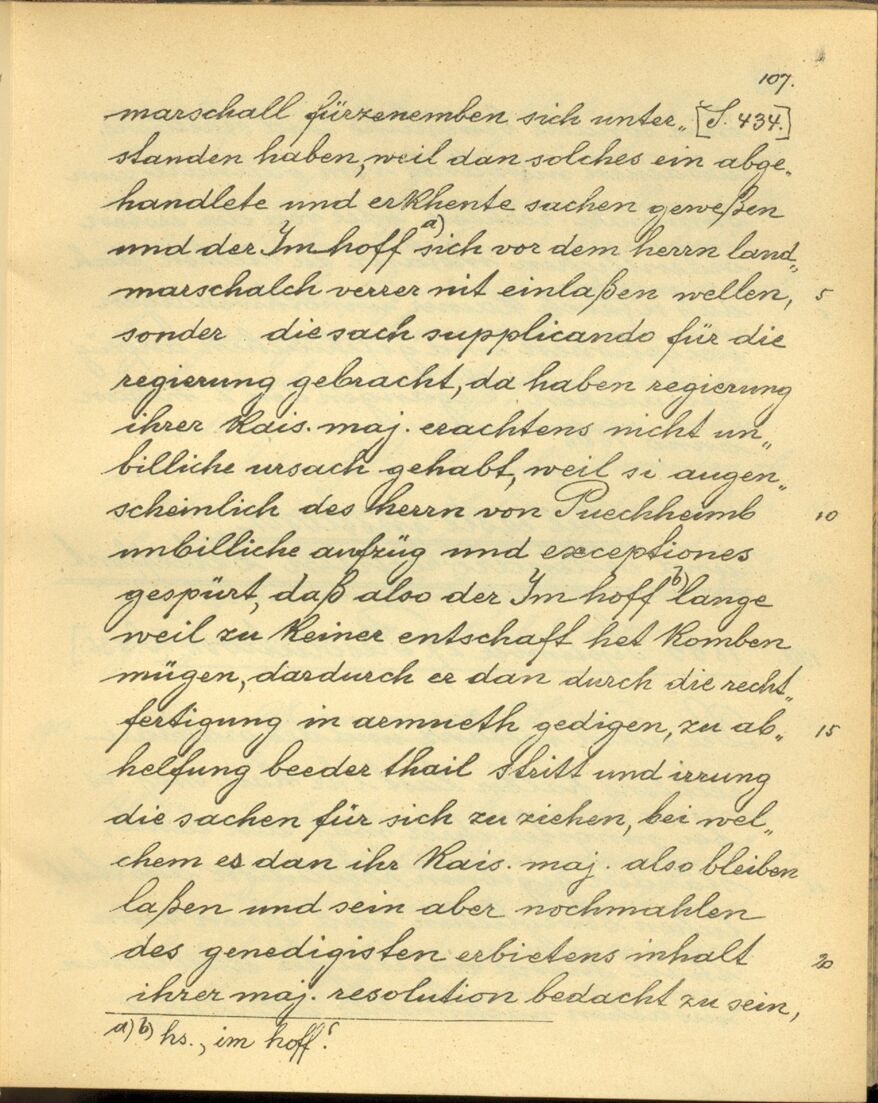 107.
marschall fürzenemben sich unter„ [S. 434.]
standen haben, weil dan solches ein abge„
handlete und erkhente sachen geweßen
und der Im hoff a) sich vor dem herrn land„
marschalch verrer nit einlaßen wellen, 5
sonder die sach supplicando für die
regierung gebracht, da haben regierung
ihrer Kais. maj. erachtens nicht un„
billiche ursach gehabt, weil si augen„
scheinlich des herrn von Puechheimb 10
unbilliche aufzüg und exceptiones
gespürt, daß also der Im hoff b) lange
weil zu keiner entschaft het komben
mügen, dardurch er dan durch die recht„
fertigung in armueth gedigen, zu ab„ 15
helfung beeder thail stritt und irrung
die sachen für sich zu ziehen, bei wel„
chem es dan ihr Kais. maj. also bleiben
laßen und sein aber nochmahlen
des genedigisten erbietens inhalt 20
ihrer maj. resolution bedacht zu sein,
a) b) hs. „im hoff“.